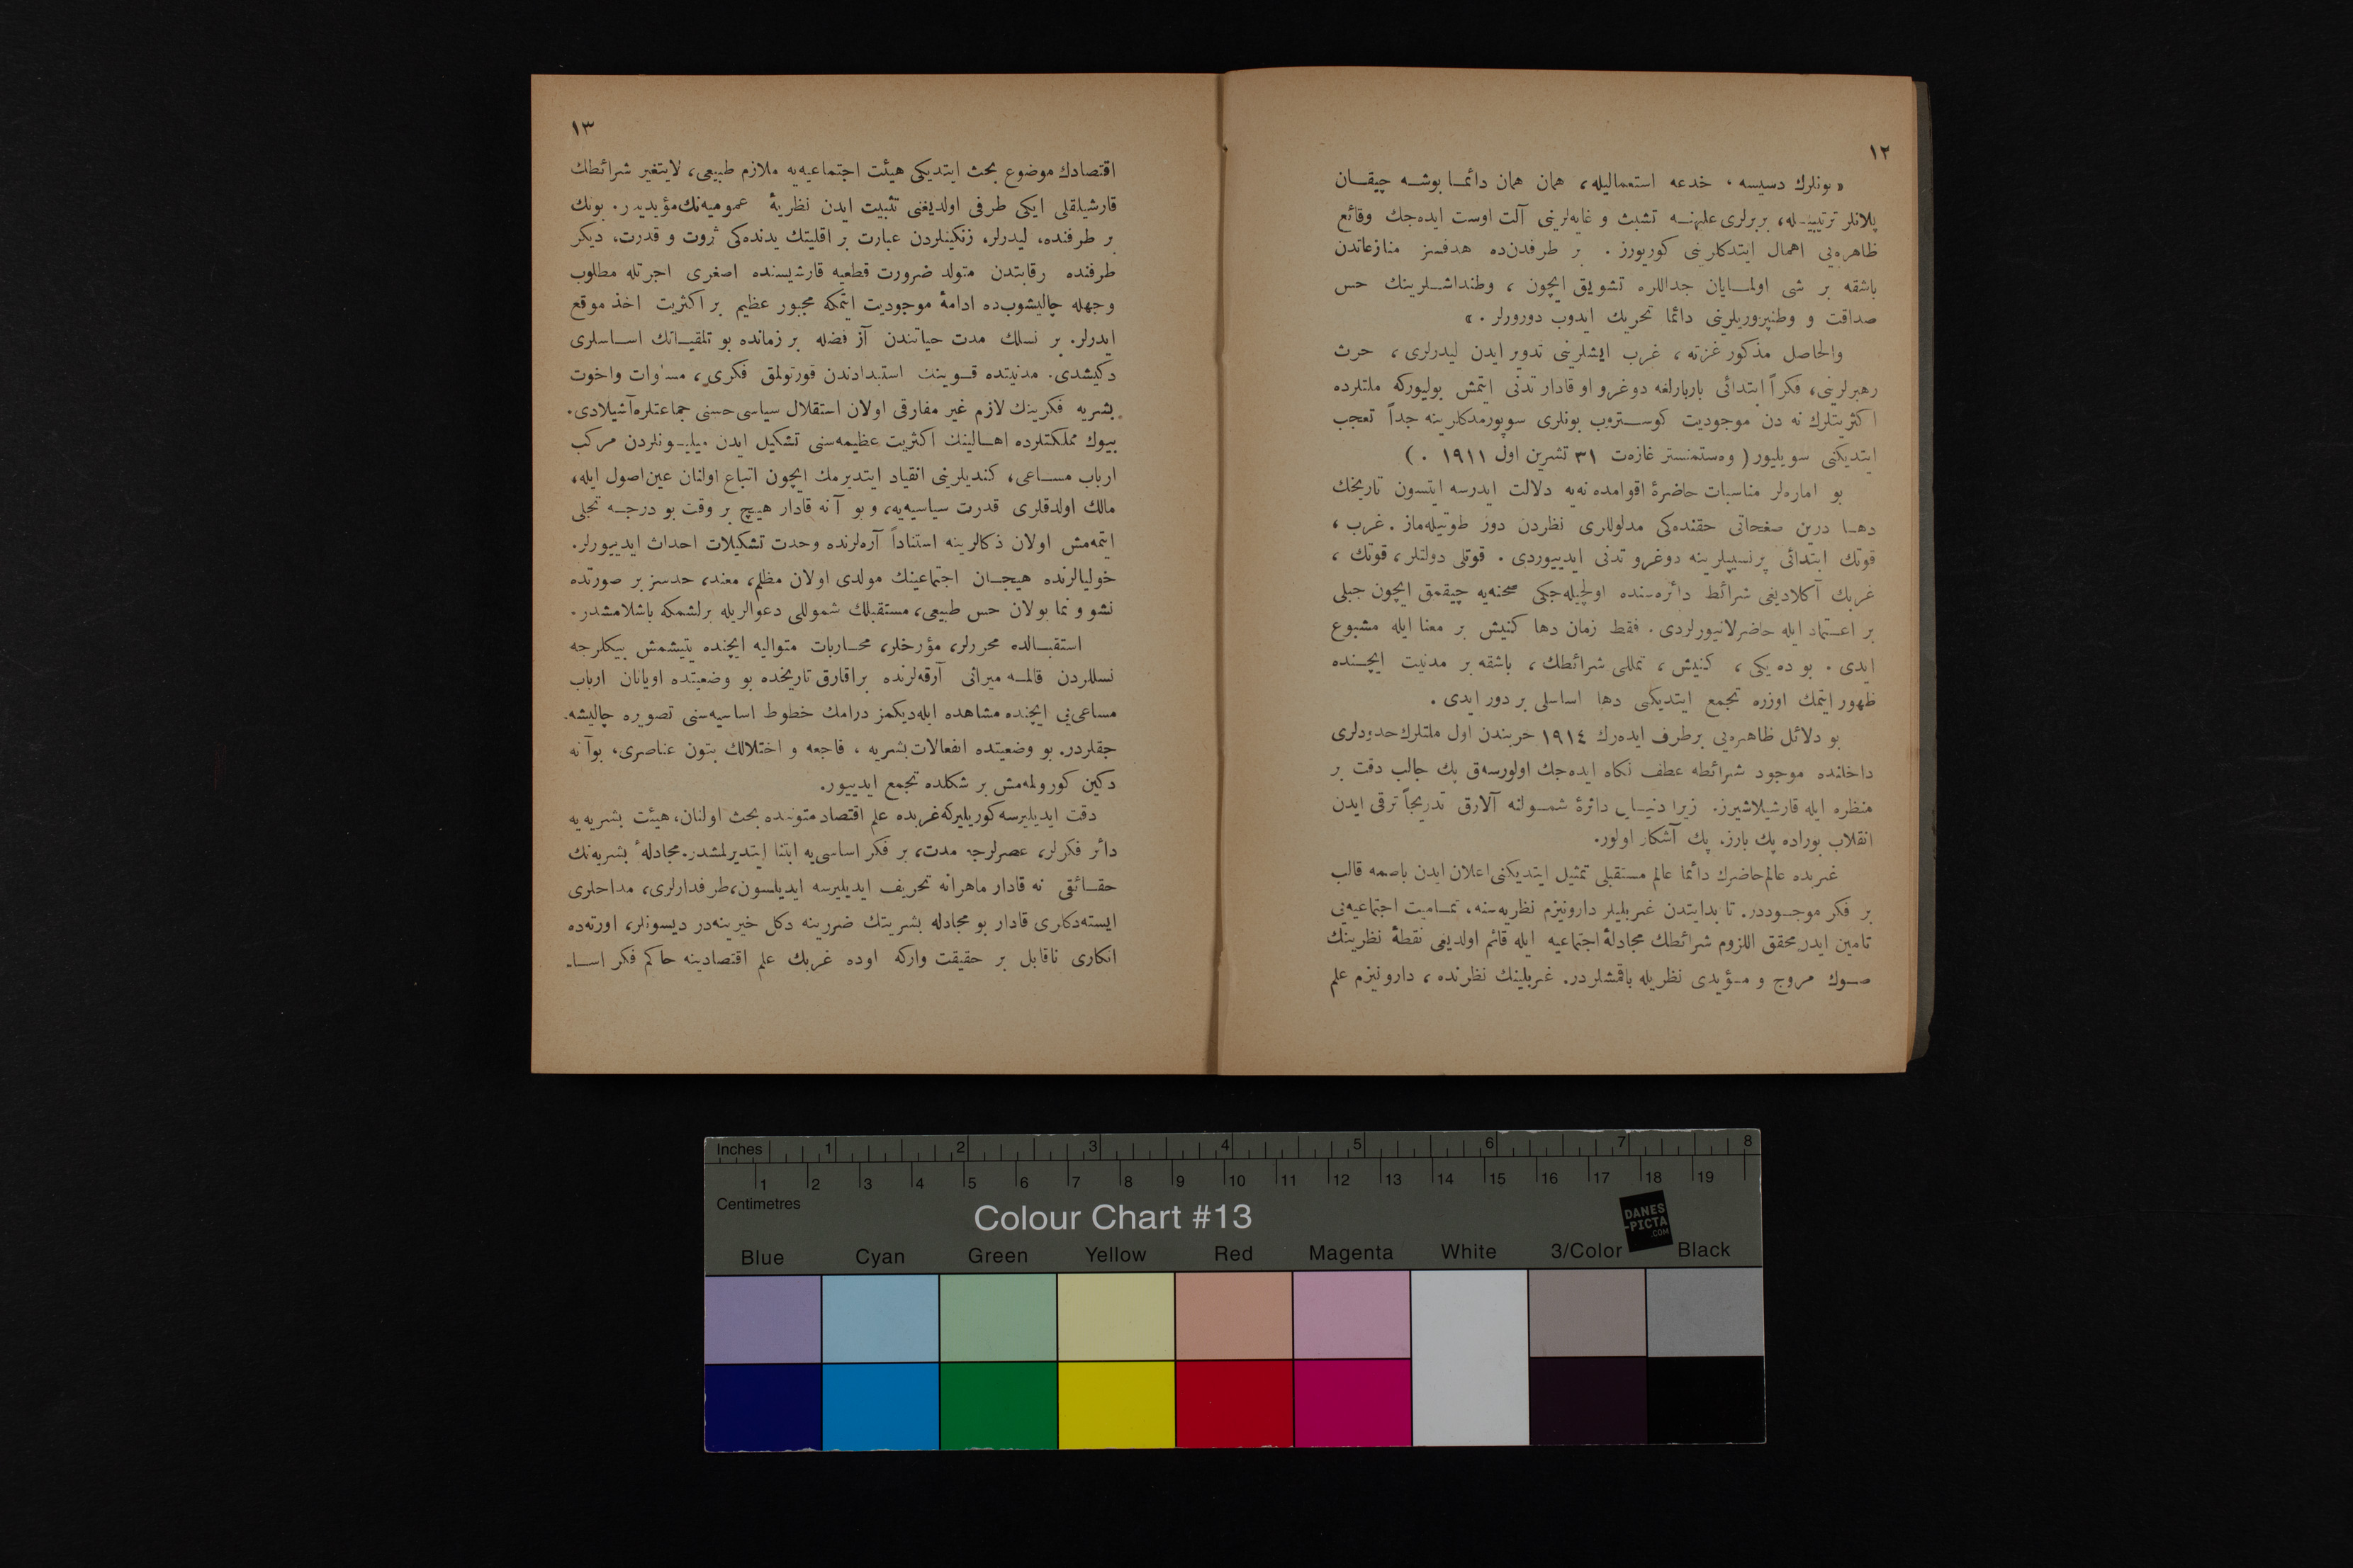 ١٢
« بونلرك دسيسه ، خدعه استعماليله، همان همان دائمـا بوشـه چيقـان
پلانلر ترتيبيـله، بربرلرى علیهنـه تشبث و غايه‌لرينى آلت اوست ايده‌جك وقائع
ظاهره‌يى اهمال ايتدكلرينى كوريورز . بر طرفدن‌ده هدفسز منازعاتدن
باشقه بر شى اولمـايان جداللره تشويق ايچون ، وطنداشـلرينك حس
صداقت و وطنپروريلرينى دائما تحريك ايدوب دورورلر . »
والحاصل مذكور غزته ، غرب ايشلرينى تدوير ايدن ليدرلرى ، حرث
رهبرلرينى، فكراً ابتدائى باربارلغه دوغرو او قادار تدنى ايتمش بوليوركه ملتلرده
اكثريتلرك نه دن موجوديت كوسـتروب بونلرى سوپورمدكلرينه جداً تعجب
ايتديكنى سويليور ( وه‌ستمنستر غازه‌ت ٣١ تشرين اول ١٩١١ . )
بو اماره‌لر مناسبات حاضرۀ اقوامده نه‌يه دلالت ايدرسه ايتسون تاريخك
دهـا درين صفحاتى حقنده‌كى مدلوللرى نظردن دور طوتيله‌ماز . غرب ،
قوتك ابتدائى پرنسيپلرينه دوغرو تدنى ايدييوردى . قوتلى دولتلر ، قوتك ،
غربك آكلاديغى شرائط دائره‌سنده اولچيله‌جكى صحنه‌يه چيقمق ايچون جبلى
بر اعـتماد ايله حاضرلانيورلردى . فقط زمان دها كنيش بر معنا ايله مشبوع
ايدى . بو ده يكى ، كنيش ، تمللى شرائطك ، باشقه بر مدنيت ايچـنده
ظهور ايتمك اوزره تجمع ايتديكى دها اساسلى بر دور ايدى .
بو دلائل ظاهره‌يى برطرف ايده‌رك ١٩١٤ حربندن اول ملتلرك حدودلرى
داخلنده موجود شرائطه عطف نكاه ايده‌جك اولورسه‌ق پك جالب دقت بر
منظره ايله قارشيلاشيرز. زيرا دنيـايى دائرۀ شمـولنه آلارق تدريجاً ترقى ايدن
انقلاب بوراده پك بارز. پك آشكار اولور.
غربده عالم‌حاضرك دائما عالم مستقبلى تمثيل ايتديكنى اعلان ايدن باصمه قالب
بر فكر موجـوددر. تا بدايتدن غربليلر داروينزم نظريه‌سنه، تمـاميت اجتماعيه‌يى
تامين ايدر محقق اللزوم شرائطك مجادلۀ اجتماعيه ايله قائم اولديغى نقطۀ نظرينك
صـوك مروج و مـؤيدى نظريله باقمشلردر. غربلينك نظرنده ، دارونيزم علم
١٣
اقتصادك موضوع بحث ايتديكى هيئت اجتماعيه‌يه ملازم طبيعى، لايتغير شرائطك
قارشيلقلى ايكى طرفى اولديغنى تثبيت ايدن نظريۀ عموميه‌نك مؤيديدر. بونك
بر طرفنده، ليدرلر، زنكينلردن عبارت بر اقليتك يدنده‌كى ثروت و قدرت، ديكر
طرفنده رقابتدن متولد ضرورت قطعيه قارشيسنده اصغرى اجرتله مطلوب
وجهله چاليشوب‌ده ادامۀ موجوديت ايتمكه مجبور عظيم بر اكثريت اخذ موقع
ايدرلر. بر نسلك مدت حياتندن آز فضله بر زمانده بو تلقيـاتك اسـاسلرى
دكيشدى. مدنيتده قـوينك استبدادندن قورتولمق فكرى، مساوات واخوت
بشريه فكرينك لازم غير مفارقى اولان استقلال سياسى حسنى جماعتلره آشيلادى.
بيوك مملكتلرده اهـالينك اكثريت عظيمه‌سنى تشكيل ايدن ميليـونلردن مركب
ارباب مسـاعى، كنديلرينى انقياد ايتديرمك ايچون اتباع اولنان عين اصول ايله،
مالك اولدقلرى قدرت سياسيه‌يه، و بو آنه قادار هيچ بر وقت بو درجـه تجلى
ايتمه‌مش اولان ذكالرينه استناداً آره‌لرنده وحدت تشكيلات احداث ايدييورلر.
خوليالرنده هيجـان اجتماعينك مولدى اولان مظلم، معند، حدسز بر صورتده
نشو و نما بولان حس طبيعى، مستقبلك شموللى دعوالريله برلشمكه باشلامشدر.
استقبـالده محررلر، مؤرخلر، محـاربات متواليه ايچنده يتيشمش بيكلرجه
نسللردن قالمـه ميراثى آرقه‌لرنده براقارق تاريخده بو وضعيتده اويانان ارباب
مساعى‌يى ايچنده مشاهده ايله‌ديكمز درامك خطوط اساسيه‌سنى تصويره چاليشه‌
جقلردر. بو وضعيتده انفعالات بشريه ، فاجعه و اختلالك بتون عناصرى، بوآنه
دكين كورولمه‌مش بر شكلده تجمع ايدييور.
دقت ايديليرسه كوريليركه غربده علم اقتصاد متوننده بحث اولنان، هيئت بشريه‌يه
دائر فكرلر، عصرلرجه مدت، بر فكر اساسى‌يه ابتنا ايتديرلمشدر. مجادلۀ بشريه‌نك
حقـائقى نه قادار ماهرانه تحريف ايديليرسه ايديلسون، طرفدارلرى، مداحلرى
ايسته‌دكلرى قادار بو مجادله بشريتك ضررينه دكل خيرينه‌در ديسونلر، اورته‌ده
انكارى ناقابل بر حقيقت واركه اوده غربك علم اقتصادينه حاكم فكر اسـاـ
Inches 1 2 3 4 5 6 7 8
1 2 3 4 5 6 7 8 9 10 11 12 13 14 15 16 17 18 19
Centimetres
Colour Chart #13
DANES
-PICTA
.COM
Blue Cyan Green Yellow Red Magenta White 3/Color Black